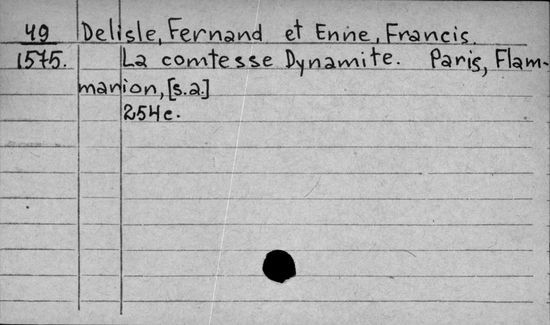 49 Delisle, Fernand et Enne, Francis.
1575. La comtesse Dynamite. Paris, Flam-
marion, [s.a.]
254 c.